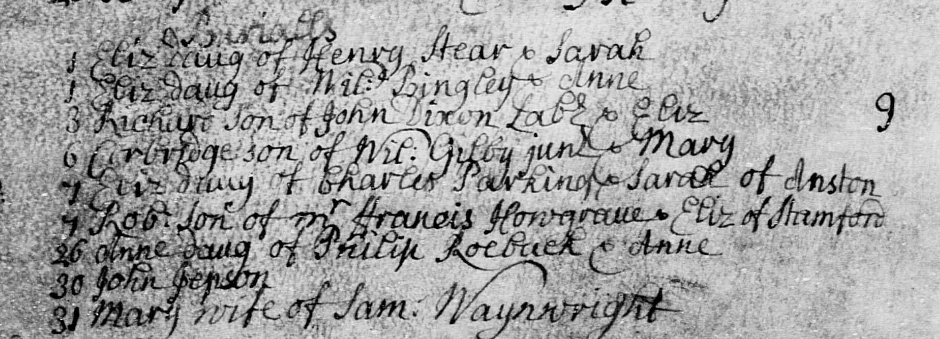 Burialls
1 Eliz daug of Henry Stear & Sarah
1 Eliz daug of Wil:m Bingley & Anne
3 Richard son of John Dixon Labr & Eliz
9
6 Corbridge son of Wil: Gilby junr & Mary
7 Eliz daug of Charles Parking & Sarah of Anston
7 Robt son of mr Francis Howgrave & Eliz of Stamford
26 Anne daug of Philip Roebuck & Anne
30 John Jepson
31 Mary wife of Sam: Waynwright